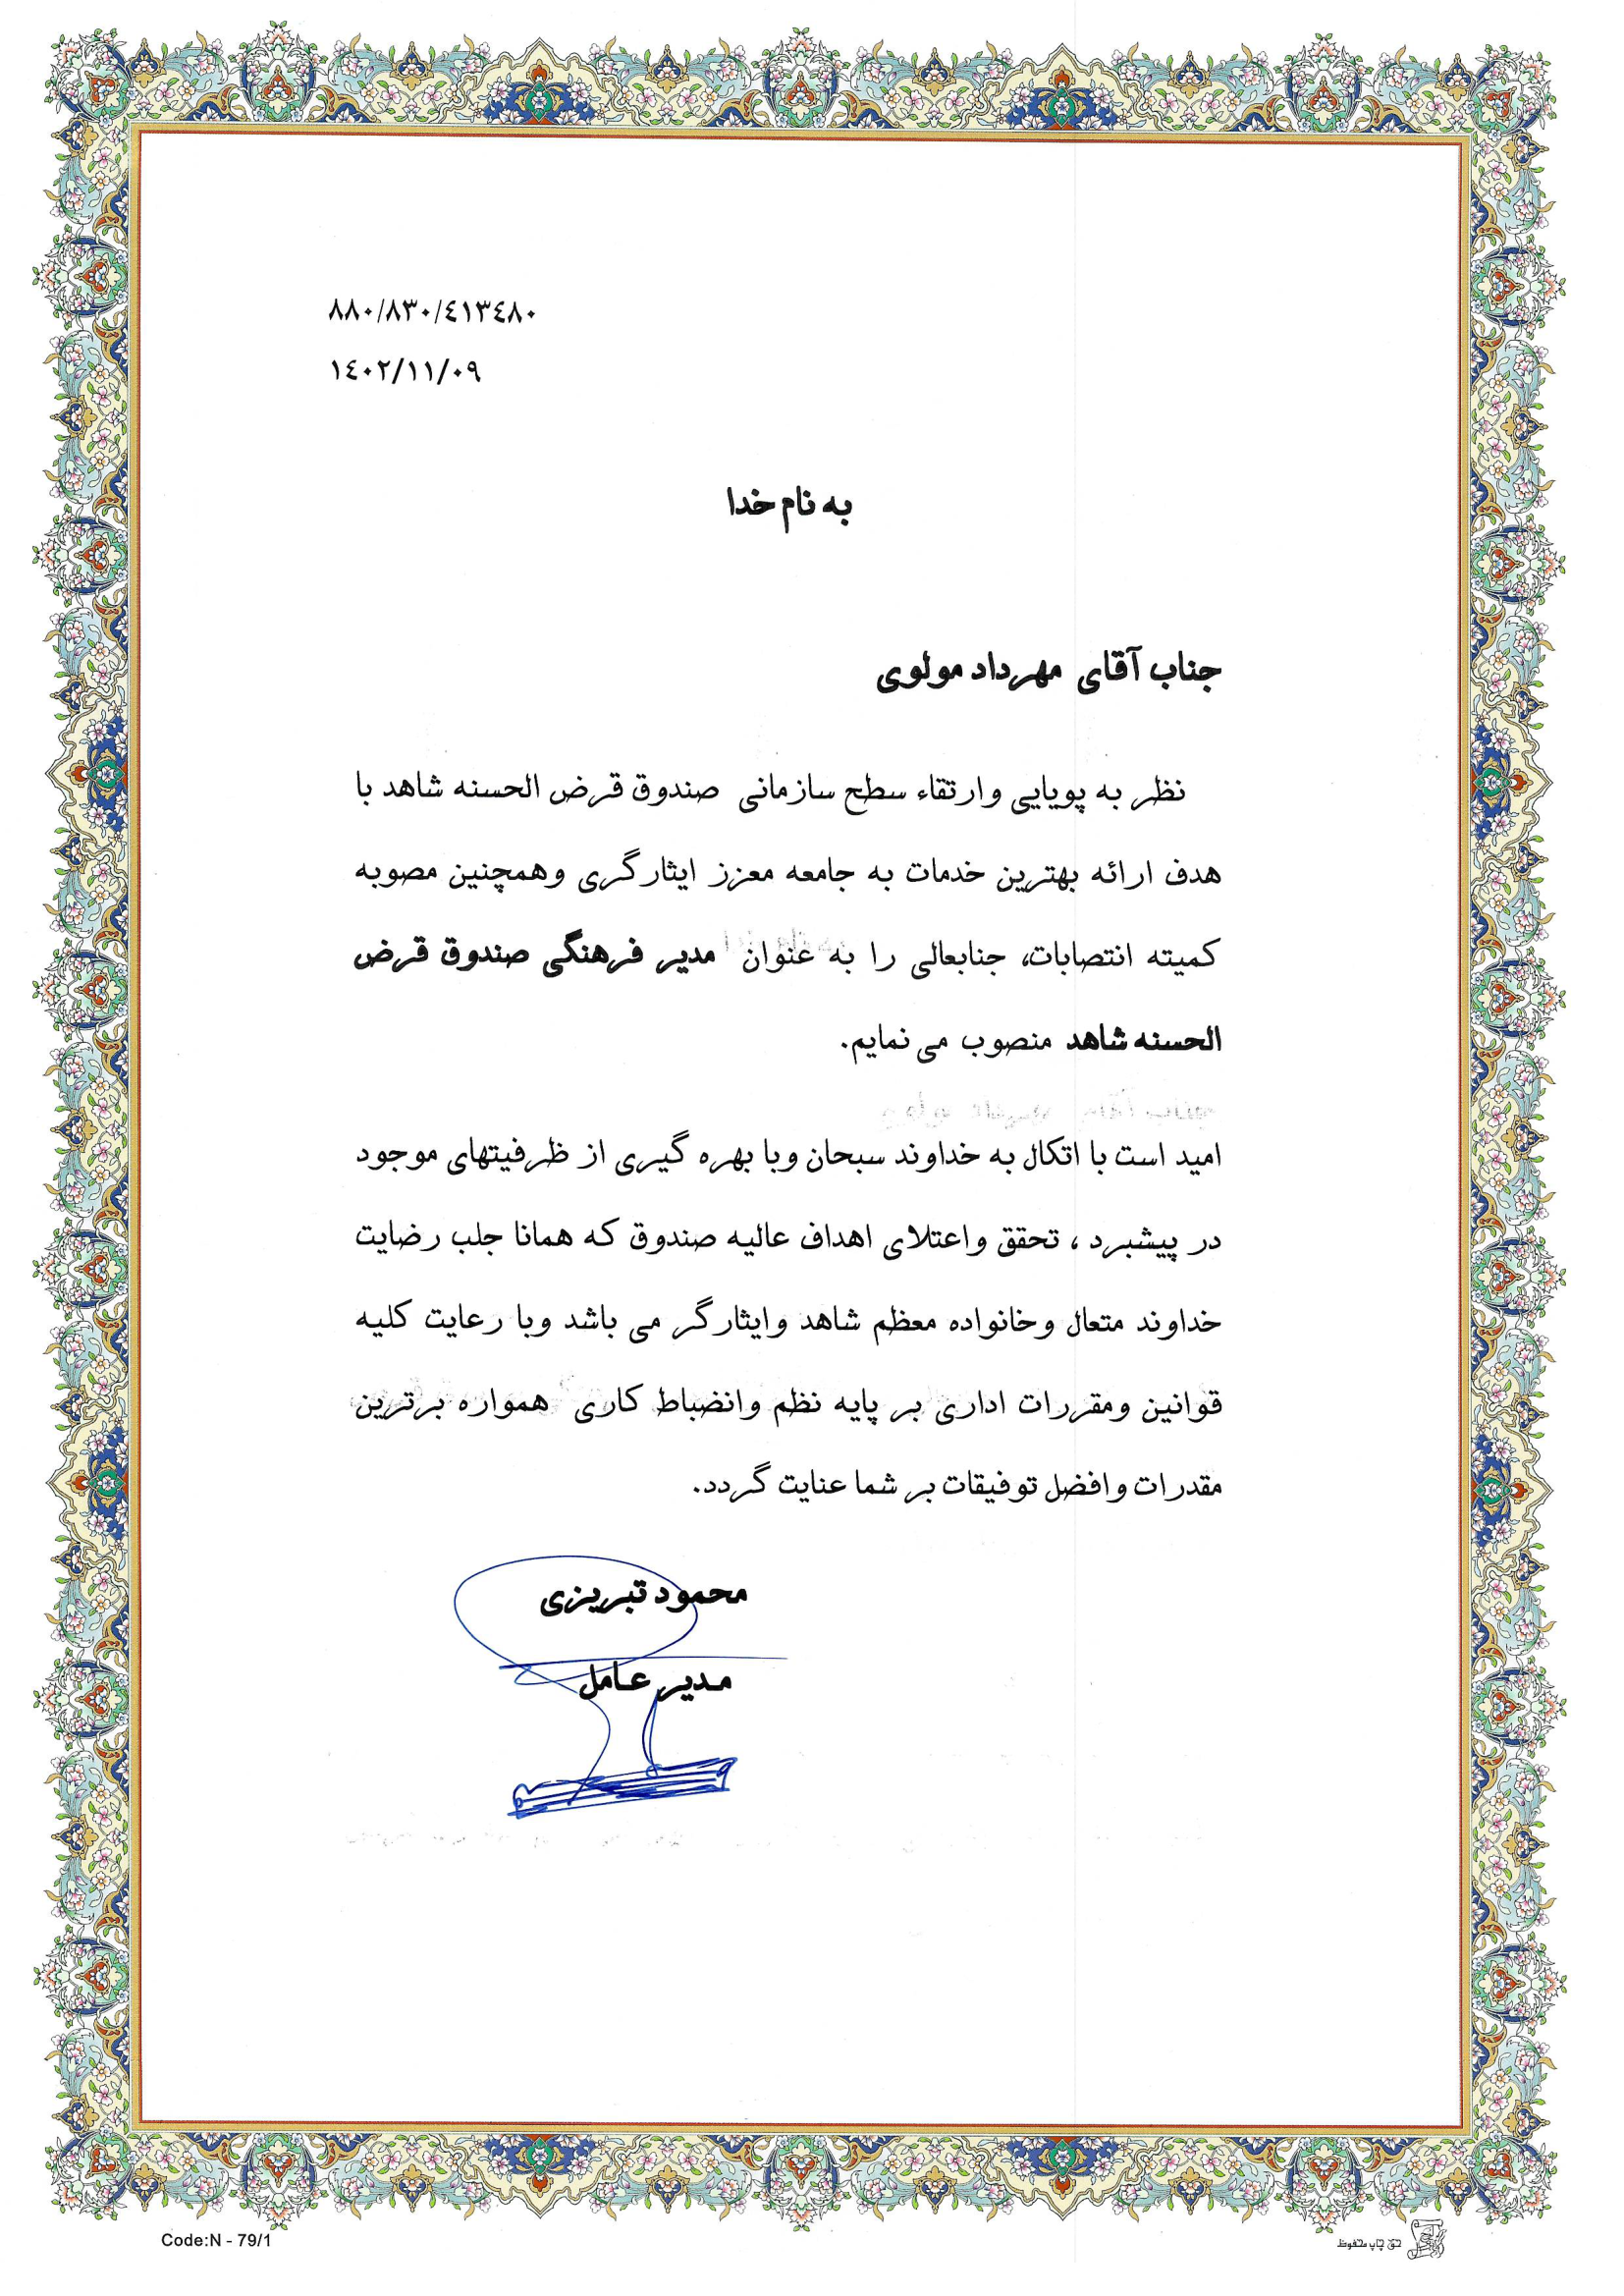 ۸۸۰/۸۳۰/٤۱۳٤۸۰
۱٤۰۲/۱۱/۰۹
به نام خدا
جناب آقای مهرداد مولوی
نظر به پویایی وارتقاء سطح سازمانی صندوق قرض الحسنه شاهد با
هدف ارائه بهترین خدمات به جامعه معزز ایثارگری وهمچنین مصوبه
کمیته انتصابات، جنابعالی را به عنوان مدیر فرهنگی صندوق قرض
الحسنه شاهد منصوب می نمایم.
امید است با اتکال به خداوند سبحان وبا بهره گیری از ظرفیتهای موجود
در پیشبرد ، تحقق واعتلای اهداف عالیه صندوق که همانا جلب رضایت
خداوند متعال وخانواده معظم شاهد وایثارگر می باشد وبا رعایت کلیه
قوانین ومقررات اداری بر پایه نظم وانضباط کاری همواره برترین
مقدرات وافضل توفیقات بر شما عنایت گردد.
محمود تبریزی
مدیر عامل
Code:N - 79/1
حق چاپ محفوظ